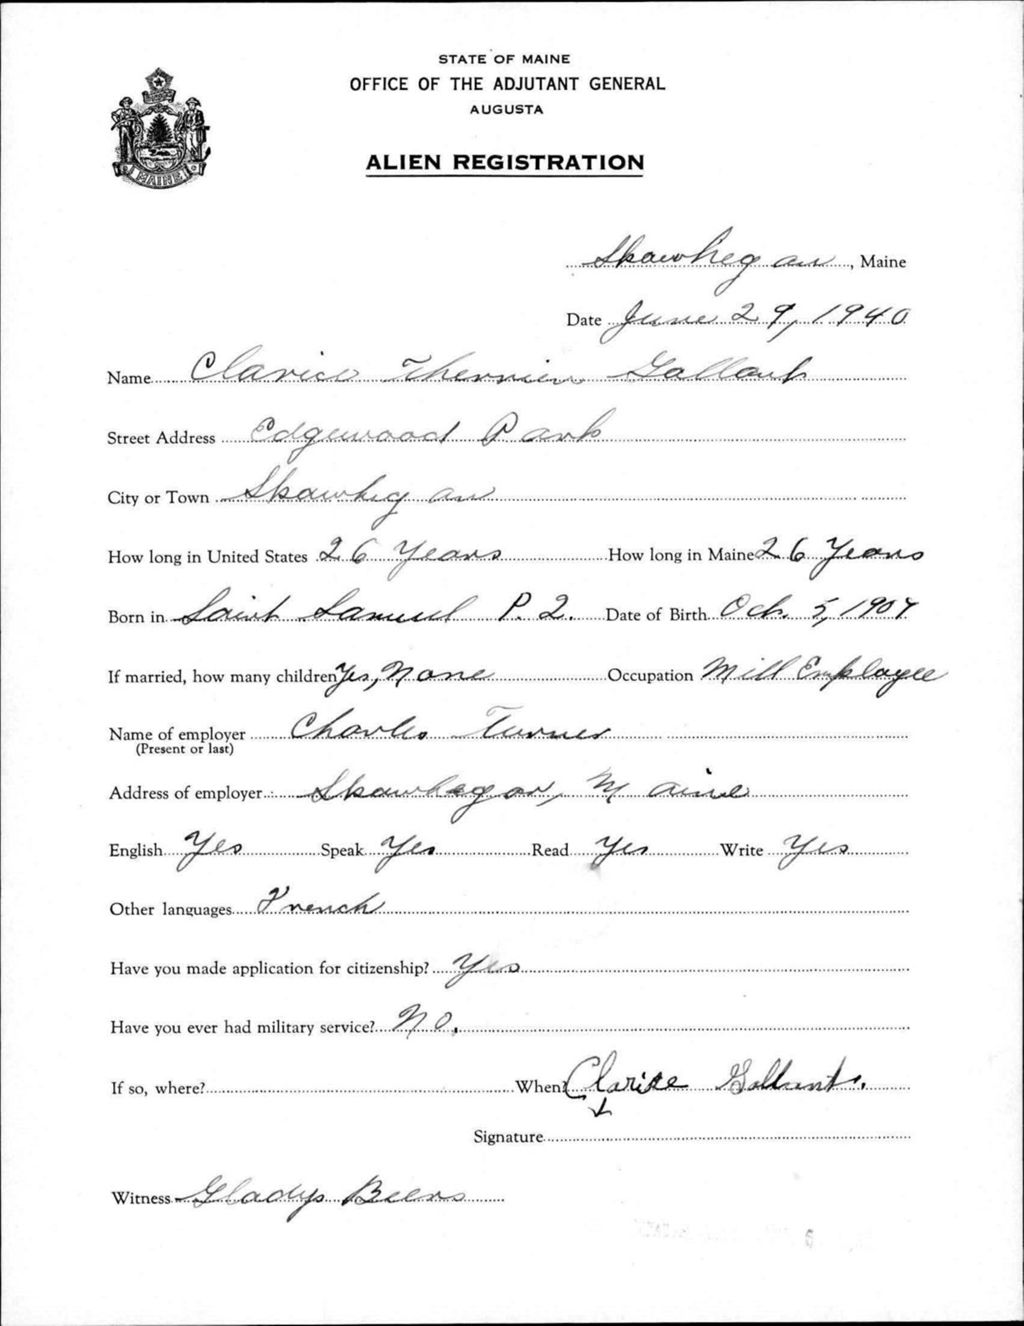 STATE OF MAINE
OFFICE OF THE ADJUTANT GENERAL
AUGUSTA
ALIEN REGISTRATION
MAINE
Skowhegan, Maine
Date June 29, 1940
Name Clarice Therrien Gallant
Street Address Edgewood Park
City or Town Skowhegan
How long in United States 26 Years How long in Maine 26 Years
Born in Saint Samuel P. Q. Date of Birth Oct. 5, 1907
If married, how many children Yes, None Occupation Mill Employee
Name of employer Charles Turner
(Present or last)
Address of employer Skowhegan, Maine
English Yes Speak Yes Read Yes Write Yes
Other languages French
Have you made application for citizenship? Yes
Have you ever had military service? No.
If so, where? When? Clarise Gallant.
Signature
Witness Gladys Beers